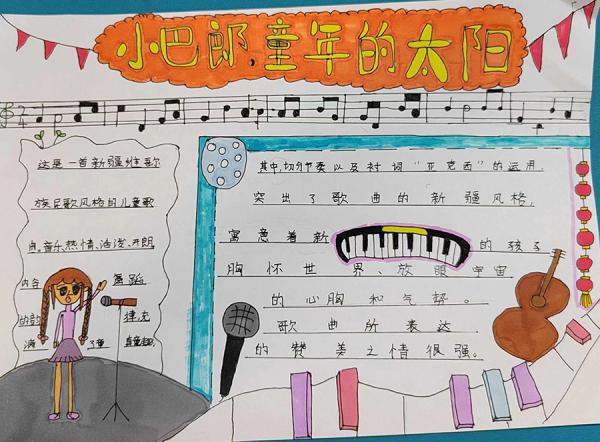 小巴郎,童年的太阳
这是一首新疆维歌
族民歌风格的儿童歌
曲。音乐热情、活泼、开朗,
内容 舞蹈
的韵 律充
满 了童 真童趣
其中,切分节奏以及衬词“亚克西”的运用,
突出了歌曲的新疆风格,
寓意着新 的孩子
胸怀世界、放眼宇宙
的心胸和气势。
歌曲所表达
的赞美之情很强。